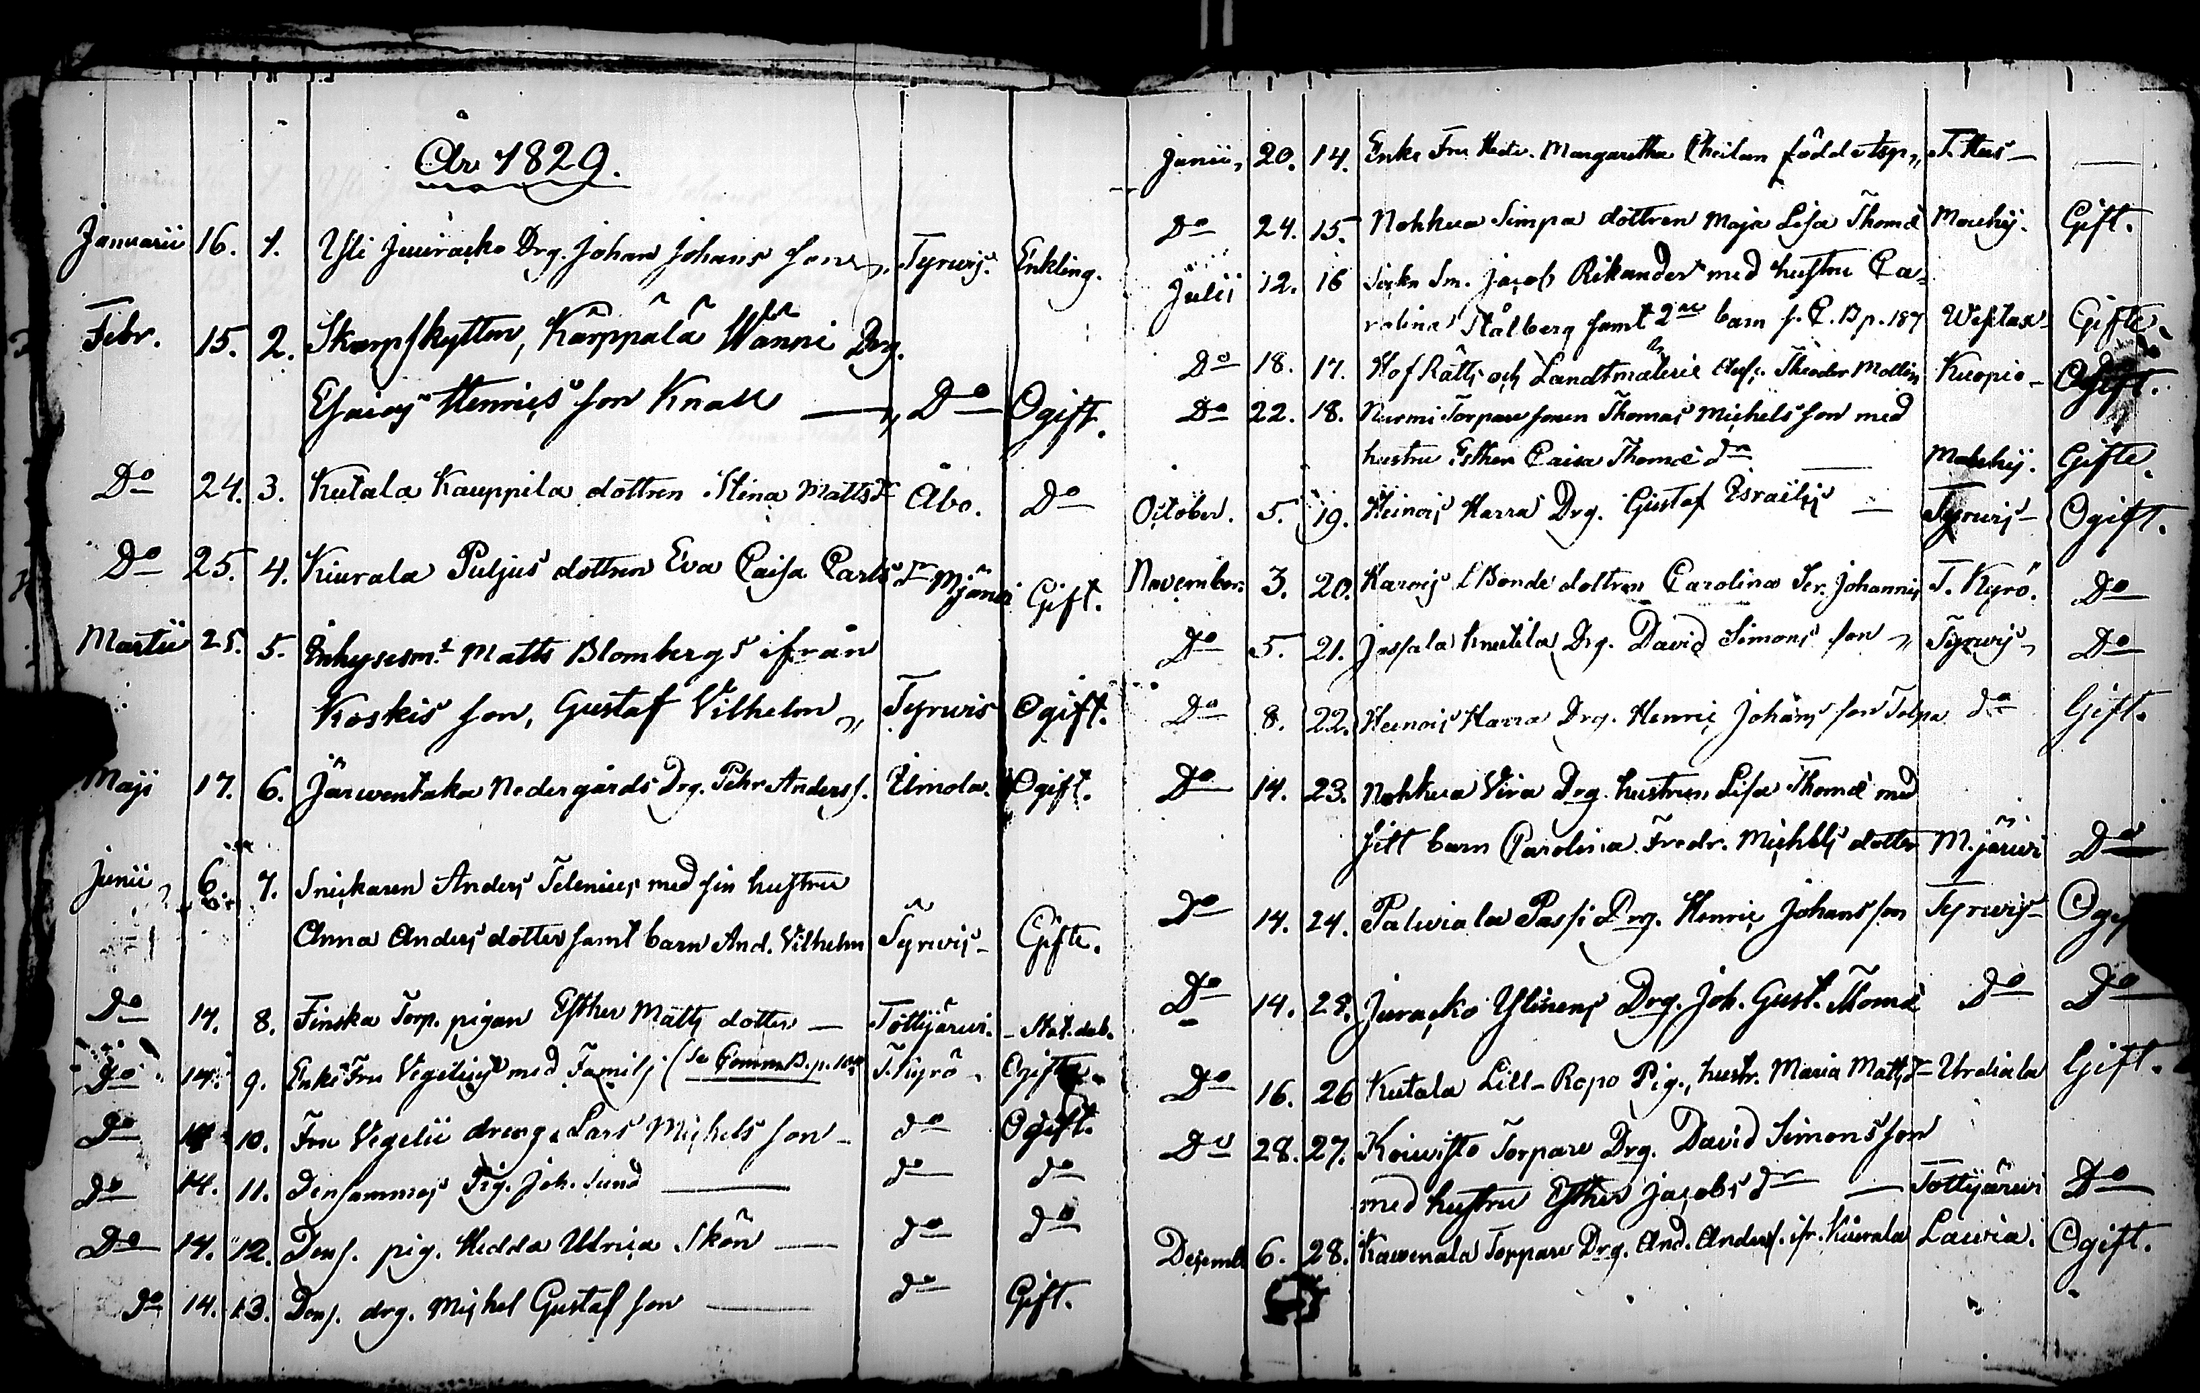 År 1829.
Januarii 16. 1. Yli Juuracko Drg. Johan Johans son „ Tyrwis. Enkling.
Febr. 15. 2. Skarpskytten, Kårppälä Wänni Drg.
Esaias Henrics son Knall — „ Do Ogift.
Do 24. 3. Kutala Kauppila dottren Stina Matts dr Åbo. Do
Do 25. 4. Kiurala Puljus dottren Eva Caisa Carls dr Gift.
Martii 25. 5. Inhysesm:s Matts Blombergs ifrån
Koskis son, Gustaf Vilhelm „ Tyrwis Ogift.
Maji 17. 6. Järwentaka Nedergårds Drg. Pehr Anderss. Ulmola. Ogift.
Junii 6. 7. Snickaren Anders Telenius med sin hustru
Anna Anders dotter samt barn And. Vilhelm Tyrwis Gifte.
Do 14. 8. Finska Torp. pigan Esther Matts dotter — Tottijärwi.
Do 14. 9. Enke Fru Vegelius med Familj (se Comm.B. p. T. Kyrö.
Do 14 10. Fru Vegelii dreng Lars Michels son — do Ogift.
Do 14. 11. Densammas Pig. Joh. Sund — do do
Do 14. 12. Dens. pig. Hedda Ulrica Skön — do do
do 14. 13. Dens. drg. Michel Gustaf son — do Gift.
Junii, 20. 14. Enke Fru Hedv. Margaretha född —
Do 24. 15. Nohkua Simpa dottren Maja Lisa Thomæ Mouhij. Gift.
Julii 12. 16 Sockn Sm. Jacob Rikander med hustru Ca-
rolina Stålberg samt 2ne barn s. C. B p. 187 Gifte.
Do 18. 17. Hof Rätts och Landtmäterie Ausc. Theodor Mollin Kuopio — Ogift.
Do 22. 18. Nurmi Torpare sonen Thomas Michels son med
hustru Esther Caisa Thomæ dr — Mouhij. Gifte.
October. 5. 19. Heinois Harra Drg. Gustaf Esraelis — Tyrwis — Ogift.
November. 3. 20. Karois Bonde dottren Carolina Ser. Johannis T. Kyrö. Do
Do 5. 21. Jassala Knutila Drg. David Simons son „ Tyrwis, Do
Do 8. 22. Heinois Harra Drg. Henric Johans son Tolpa do Gift.
Do 14. 23. Nohkua Vira Drg. hustrun Lisa Thomæ med
sitt barn Carolina Fredr. Michels dotter M. järwi Do
Do 14. 24. Palviala Passi Drg. Henric Johans son Tyrwis —
Do 14. 25. Juracko Ylinens Drg. Joh. Gust. Thomæ Do Do
Do 16. 26 Kutala Lill-Ropo Pig., hustr. Maria Matts dr Urdiala Gift.
Do 28. 27. Koiwisto Torpare Drg. David Simons son
med hustru Esther Jacobs dr — Tottijärwi Do
Decemb 6. 28. Kawenala Torpare Drg. And. Anders. ifr. Kiurala Lauvia. Ogift.